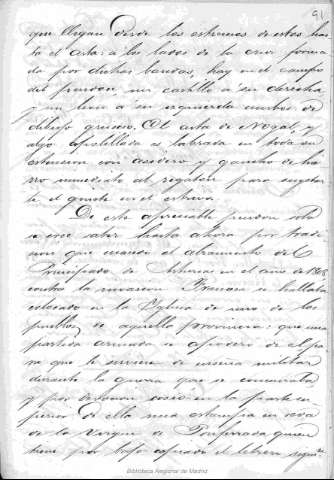 91
que llegan desde los estremos de estos has
ta el asta: a los lados de la cruz forma
da por dichas bandas, hay en el campo
del pendon, un castillo a su derecha
y un leon a su izquierda ambos de
dibujo grueso. El asta de Nogal, y
algo astillada es labrada en toda su
estension con asidero y gancho de hie
rro inmediato al regaton para sujetar
le el ginete en el estrivo.
De este apreciable pendon solo
se sabe hasta ahora por tradi
cion que cuando el alzamiento del
Principado de Asturias en el año de 1808
contra la invasion Francesa se hallaba
colocado en la Iglesia de uno de los
pueblos de aquella provincia: que una
partida armada se apoderó de el pa
ra que le sirviera de enseña militar
durante la guerra que se comenzaba
y por devocion cosió en la parte su
perior de ella una estampa en seda
de la Virgen de Ponferrada, quien
tiene por bajo
Biblioteca Regional de Madrid